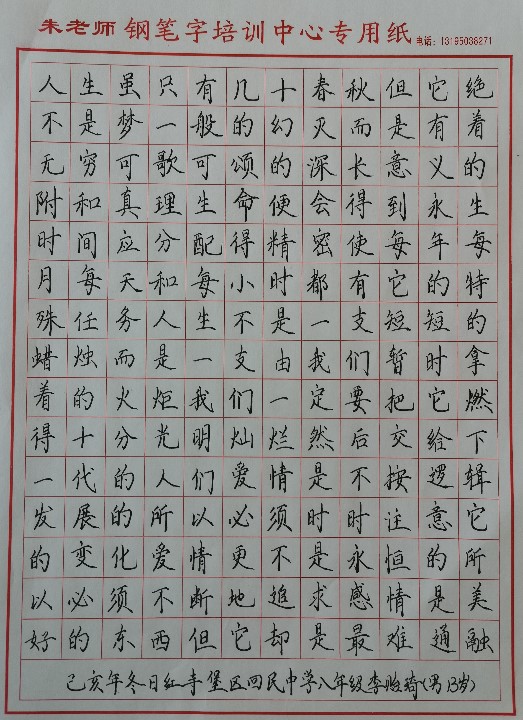 朱老师钢笔字培训中心专用纸 电话：13195036271
人生虽只有几十春秋但它绝
不是梦一般的幻灭而是有着
无穷可歌可颂的深长意义的
附和真理生命便会得到永生
时间应分配得精密使每年每
月每天和每小时都有它的特
殊任务人生不是一支短短的
蜡烛而是一支由我们暂时拿
着的火炬我们一定要把它燃
得十分光明灿烂然后交给下
一代的人们爱情是不按逻辑
发展的所以必须时时注意它
的变化爱情更不是永恒的所
以必须不断地追求感情是美
好的东西但它却是最难通融
己亥年冬日红寺堡区回民中学八年级李贻琦(男13岁)